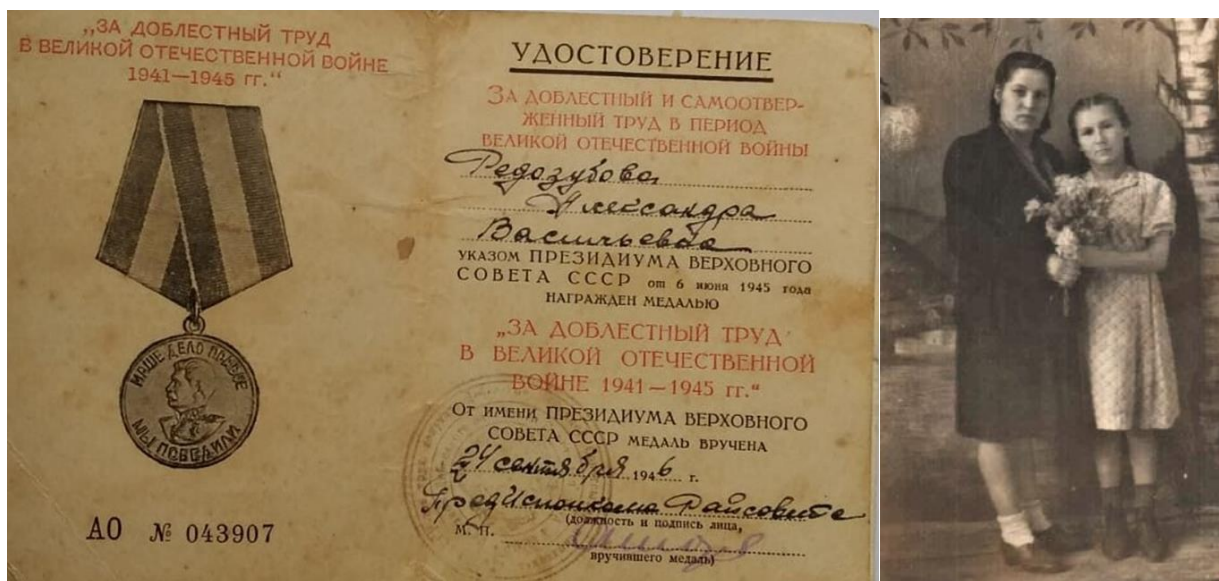 „ЗА ДОБЛЕСТНЫЙ ТРУД
В ВЕЛИКОЙ ОТЕЧЕСТВЕННОЙ ВОЙНЕ
1941—1945 гг.“
НАШЕ ДЕЛО ПРАВОЕ
МЫ ПОБЕДИЛИ
АО № 043907
УДОСТОВЕРЕНИЕ
ЗА ДОБЛЕСТНЫЙ И САМООТВЕР-
ЖЕННЫЙ ТРУД В ПЕРИОД
ВЕЛИКОЙ ОТЕЧЕСТВЕННОЙ ВОЙНЫ
Редозубова
Александра
Васильевна
УКАЗОМ ПРЕЗИДИУМА ВЕРХОВНОГО
СОВЕТА СССР от 6 июня 1945 года
НАГРАЖДЕН МЕДАЛЬЮ
„ЗА ДОБЛЕСТНЫЙ ТРУД
В ВЕЛИКОЙ ОТЕЧЕСТВЕННОЙ
ВОЙНЕ 1941—1945 гг.“
От имени ПРЕЗИДИУМА ВЕРХОВНОГО
СОВЕТА СССР МЕДАЛЬ ВРУЧЕНА
24 сентября 1946 г.
Пред Исполкома Райсовета
(должность и подпись лица,
М. П.
вручившего медаль)